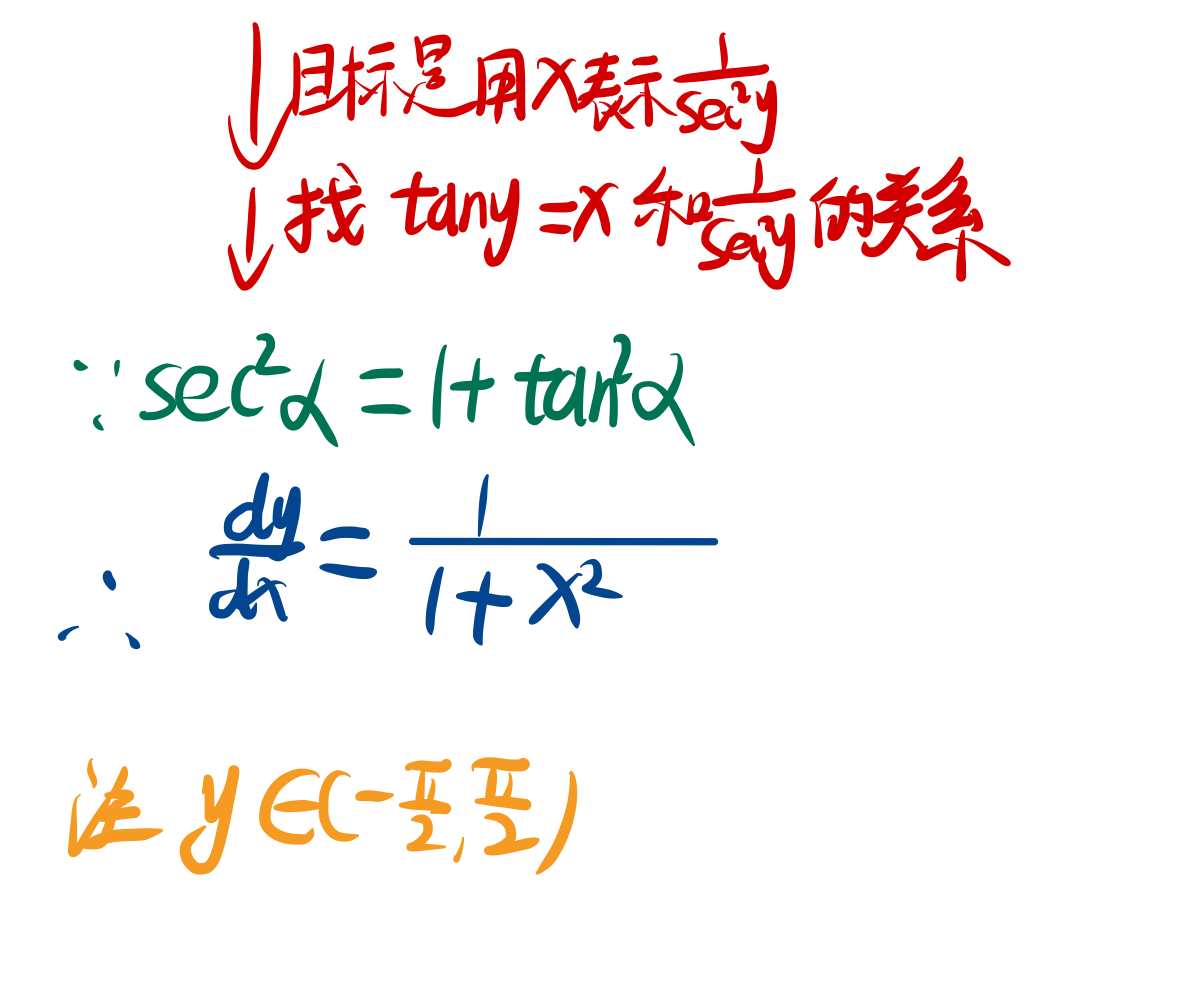 ↓目标是用x表示 1/sec²y
↓找 tany=x 和 1/sec²y 的关系
∵ sec²α = 1 + tan²α
∴ dy/dx = 1/(1+x²)
注 y∈(-π/2, π/2)